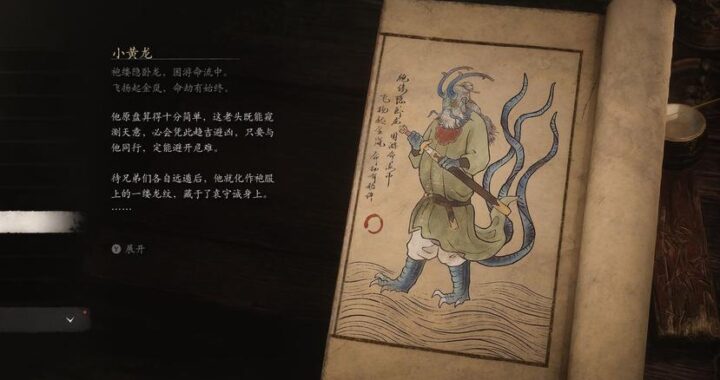 小黄龙
袍缕隐卧龙，困游命流中。
飞扬起金岚，命劫有始终。
他原盘算得十分简单，这老头既能窥
测天意，必会凭此趋吉避凶，只要与
他同行，定能避开危难。
待兄弟们各自远遁后，他就化作袍服
上的一缕龙纹，藏于了袁守诚身上。
……
Y 展开
袍缕隐卧龙
困游命流中
飞扬起金岚
命劫有始终